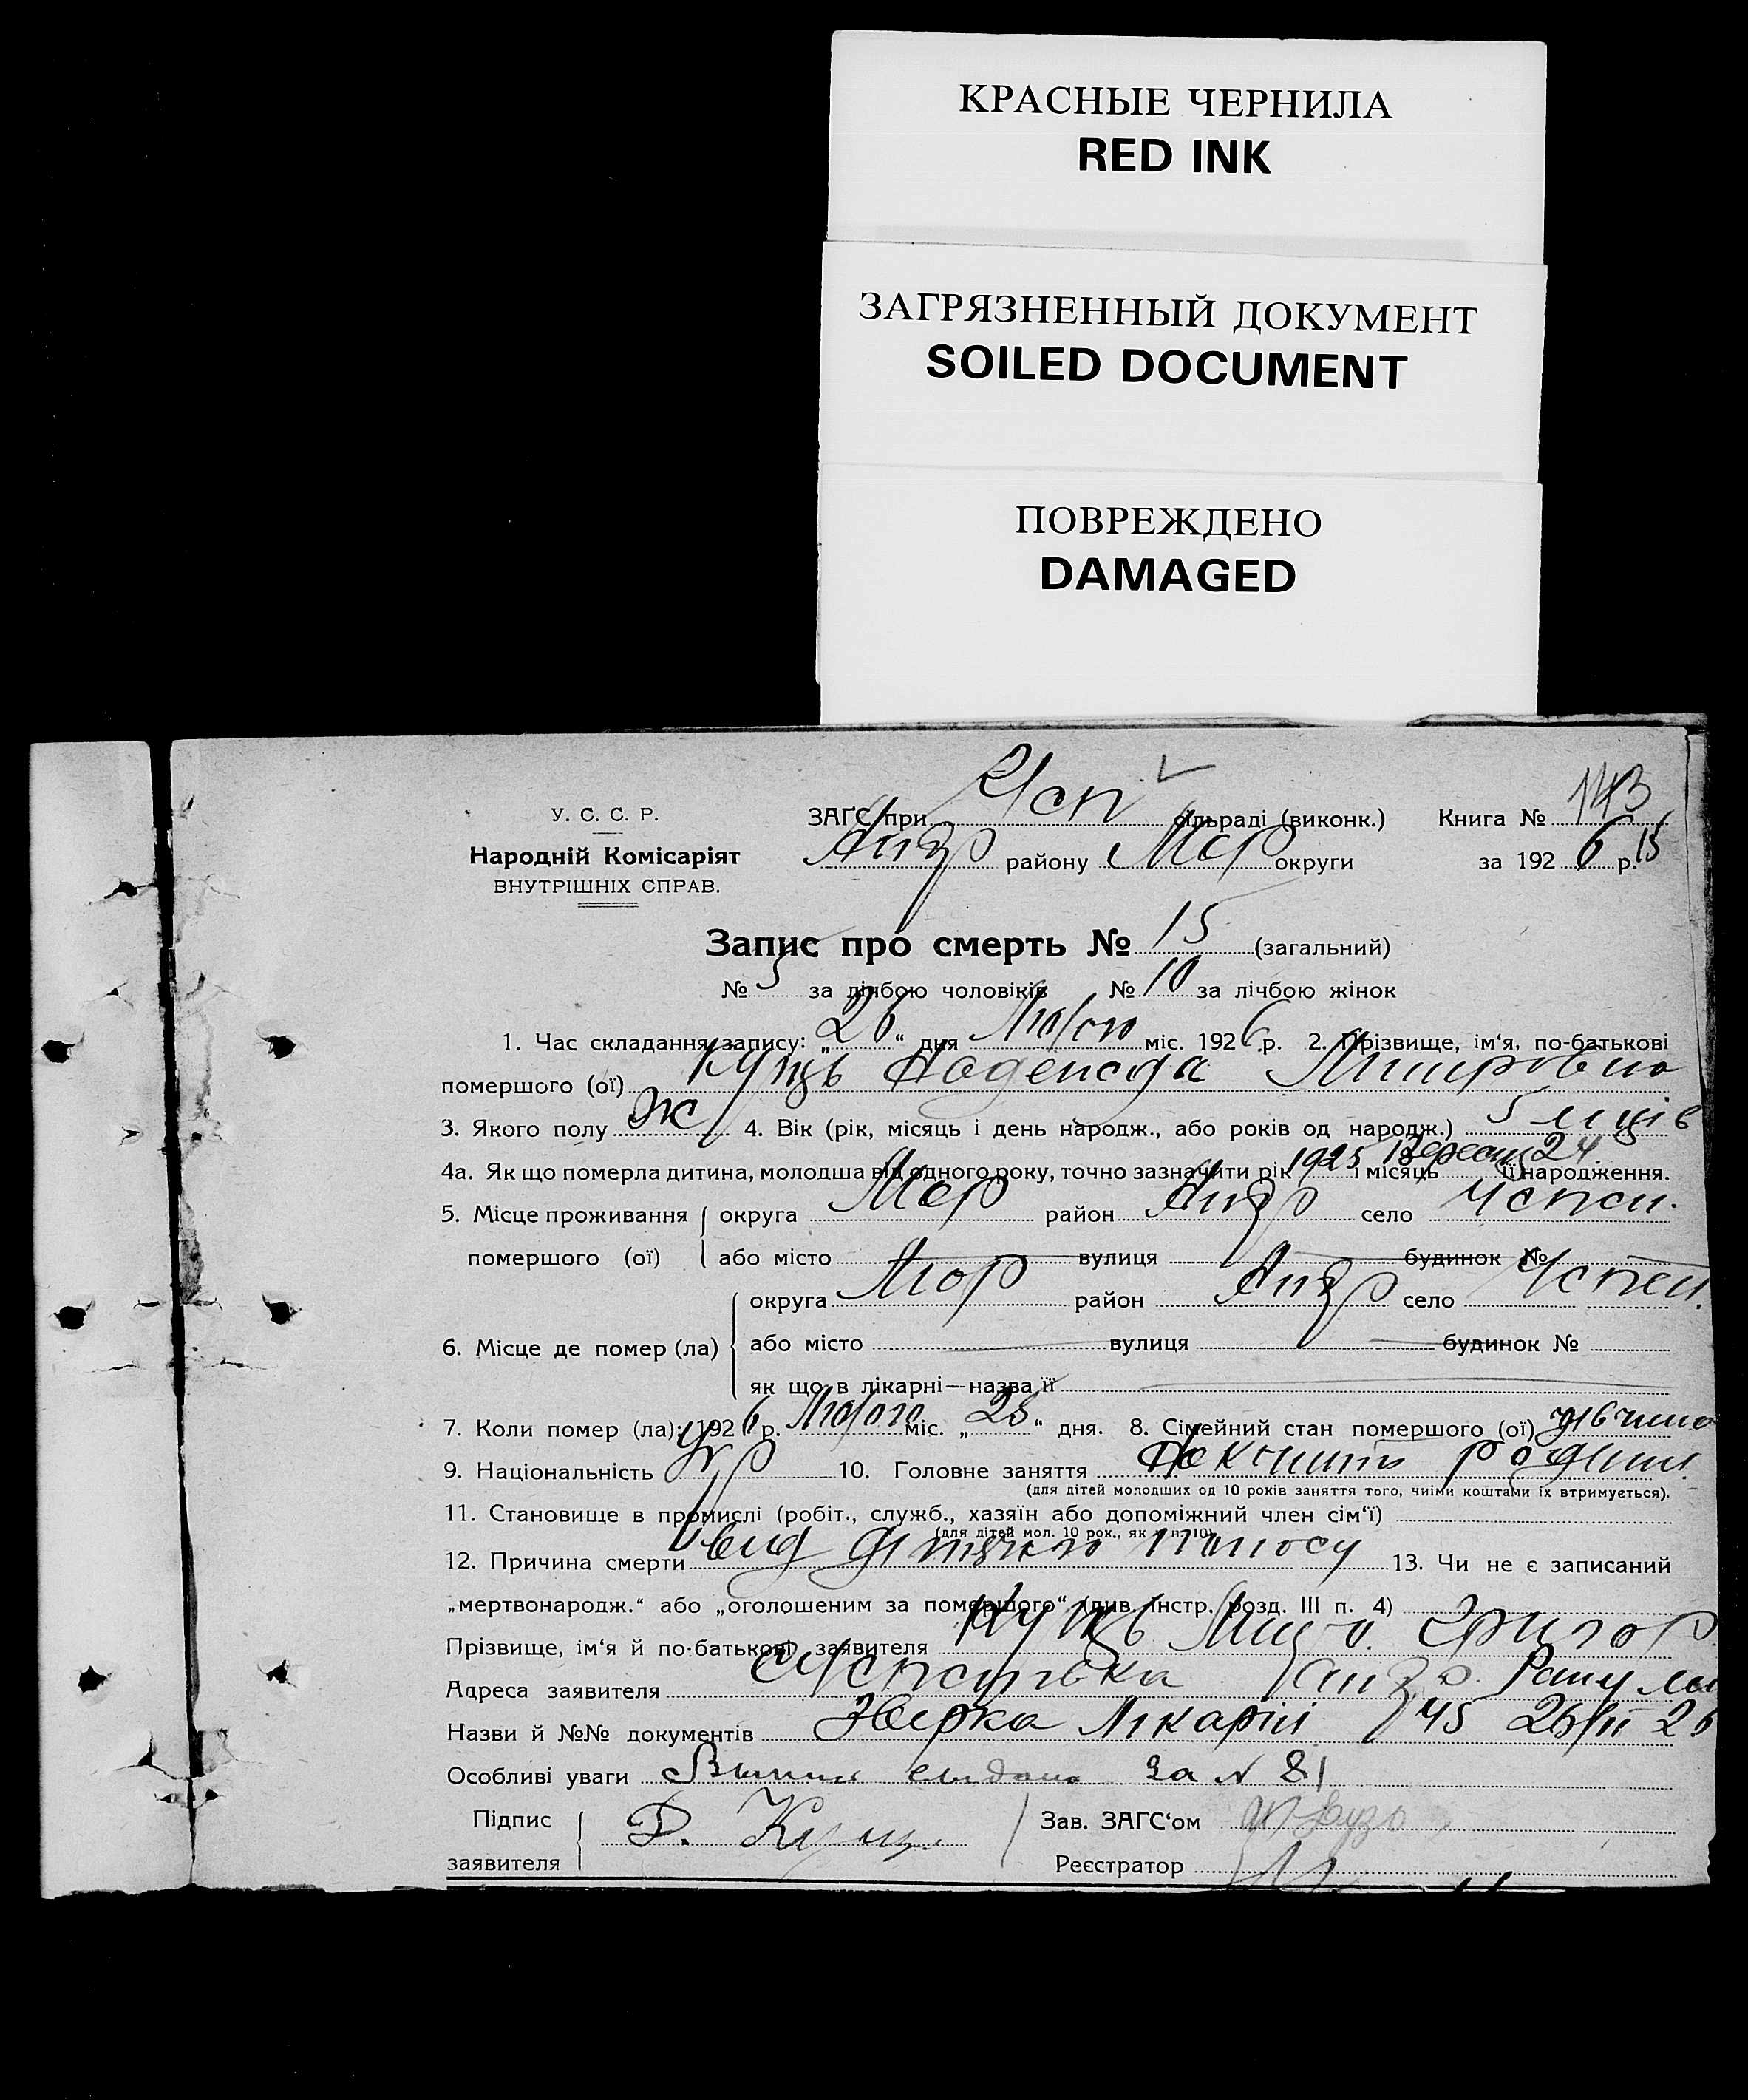 КРАСНЫЕ ЧЕРНИЛА
RED INK
ЗАГРЯЗНЕННЫЙ ДОКУМЕНТ
SOILED DOCUMENT
ПОВРЕЖДЕНО
DAMAGED
У. С. С. Р.
Народній Комісаріят
ВНУТРІШНІХ СПРАВ.
ЗАГС при Усп сільраді (виконк.) Книга № 143
району Мар округи за 192 6 р. 15
Запис про смерть № 15 (загальний)
№ 5 за лічбою чоловіків № 10 за лічбою жінок
1. Час складання запису: „26“ дня Лютого міс. 1926 р. 2. Прізвище, ім‘я, по-батькові
помершого (ої) Куць Надежда
3. Якого полу Ж 4. Вік (рік, місяць і день народж., або років од народж.) 5 м-ців
4а. Як що померла дитина, молодша від одного року, точно зазначити рік 1925 і місяць Вересня 24 її народження.
5. Місце проживання округа Мар район село
помершого (ої) або місто вулиця будинок №
6. Місце де помер (ла) округа Мар район село
або місто вулиця будинок №
як що в лікарні—назва її
7. Коли помер (ла): 1926 р. Лютого міс. „25“ дня. 8. Сімейний стан помершого (ої) дівчина
9. Національність Укр 10. Головне заняття
(для дітей молодших од 10 років заняття того, чиїми коштами їх втримується).
11. Становище в промислі (робіт., служб., хазяїн або допоміжний член сім‘ї)
(для дітей мол. 10 рок., як в п. 10).
12. Причина смерти від дитячого поносу 13. Чи не є записаний
„мертвонародж.“ або „оголошеним за помершого“ (див. інстр. розд. III п. 4)
Прізвище, ім‘я й по-батькові заявителя Куць Григор
Адреса заявителя
Назви й №№ документів Лікарні 45 26/II 26
Особливі уваги за № 81
Підпис
заявителя
Зав. ЗАГС‘ом
Реєстратор